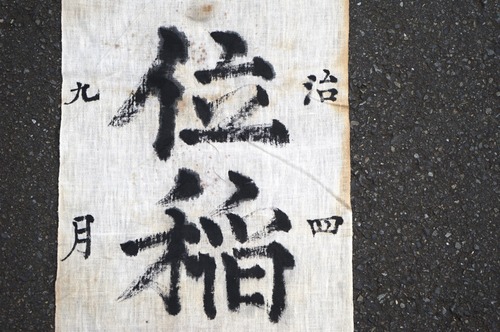 治四
位稲
九月